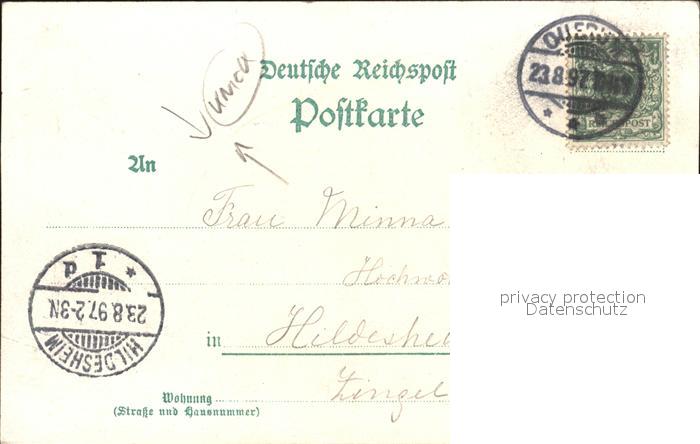 unica
Deutsche Reichspost
Postkarte
23.8.97
REICHSPOST
An
Frau Minna
privacy protection
Datenschutz
in Hildeshei
Zingel
Wohnung
(Straße und Hausnummer)
HILDESHEIM
23.8.97.2-3N.
1 d